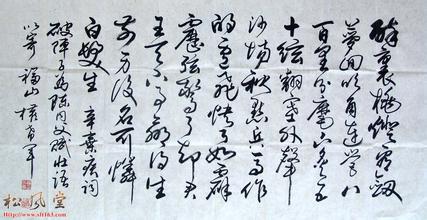 醉裏挑燈看劍
夢回吹角連營八
百里分麾下炙五
十絃翻塞外聲
沙場秋點兵馬作
的盧飛快弓如霹
靂弦驚了却君
王天下事贏得生
前身後名可憐
白髮生 辛棄疾詞
破陣子為陳同父賦壯語
以寄 福山
松风堂
http://www.sft163.com